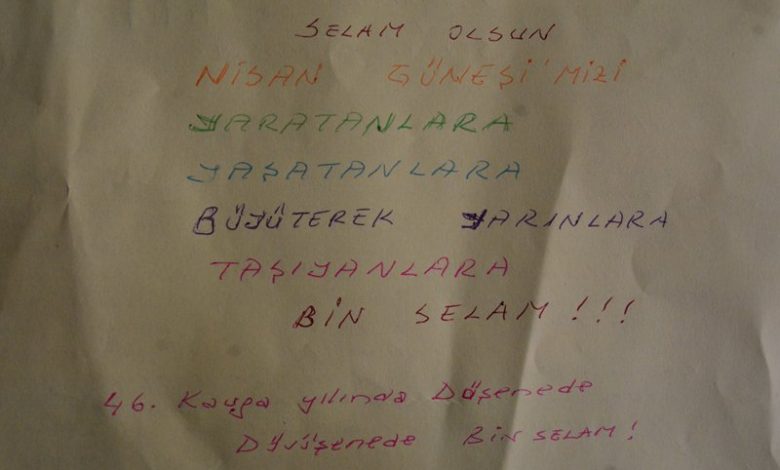 SELAM OLSUN
NİSAN GÜNEŞİ'MİZİ
YARATANLARA
YAŞATANLARA
BÜYÜTEREK YARINLARA
TAŞIYANLARA
BİN SELAM!!!
46. Kavga yılında Düşenede
Dövüşenede BİN SELAM!